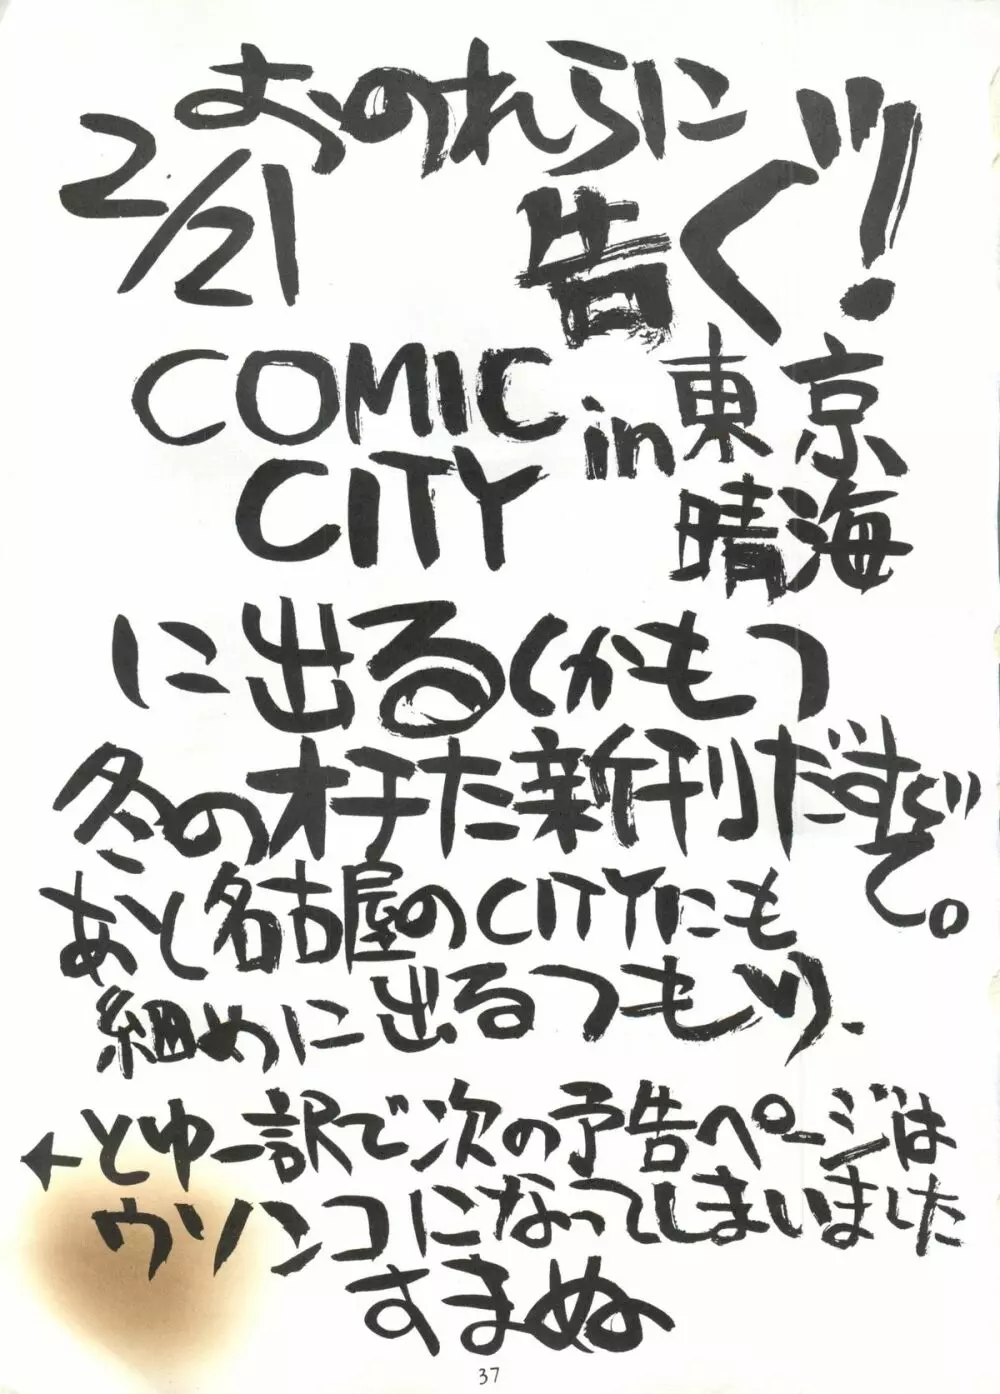 おのれらに
告ぐ!!
2/21
COMIC
CITY
in東京
晴海
に出る(かも)
冬のオチた新刊だすぐ
て。
あと名古屋のCITYにも
細めに出るつもり、
←とゆー訳で次の予告ページは
ウソンコになってしまいました
すまぬ
37